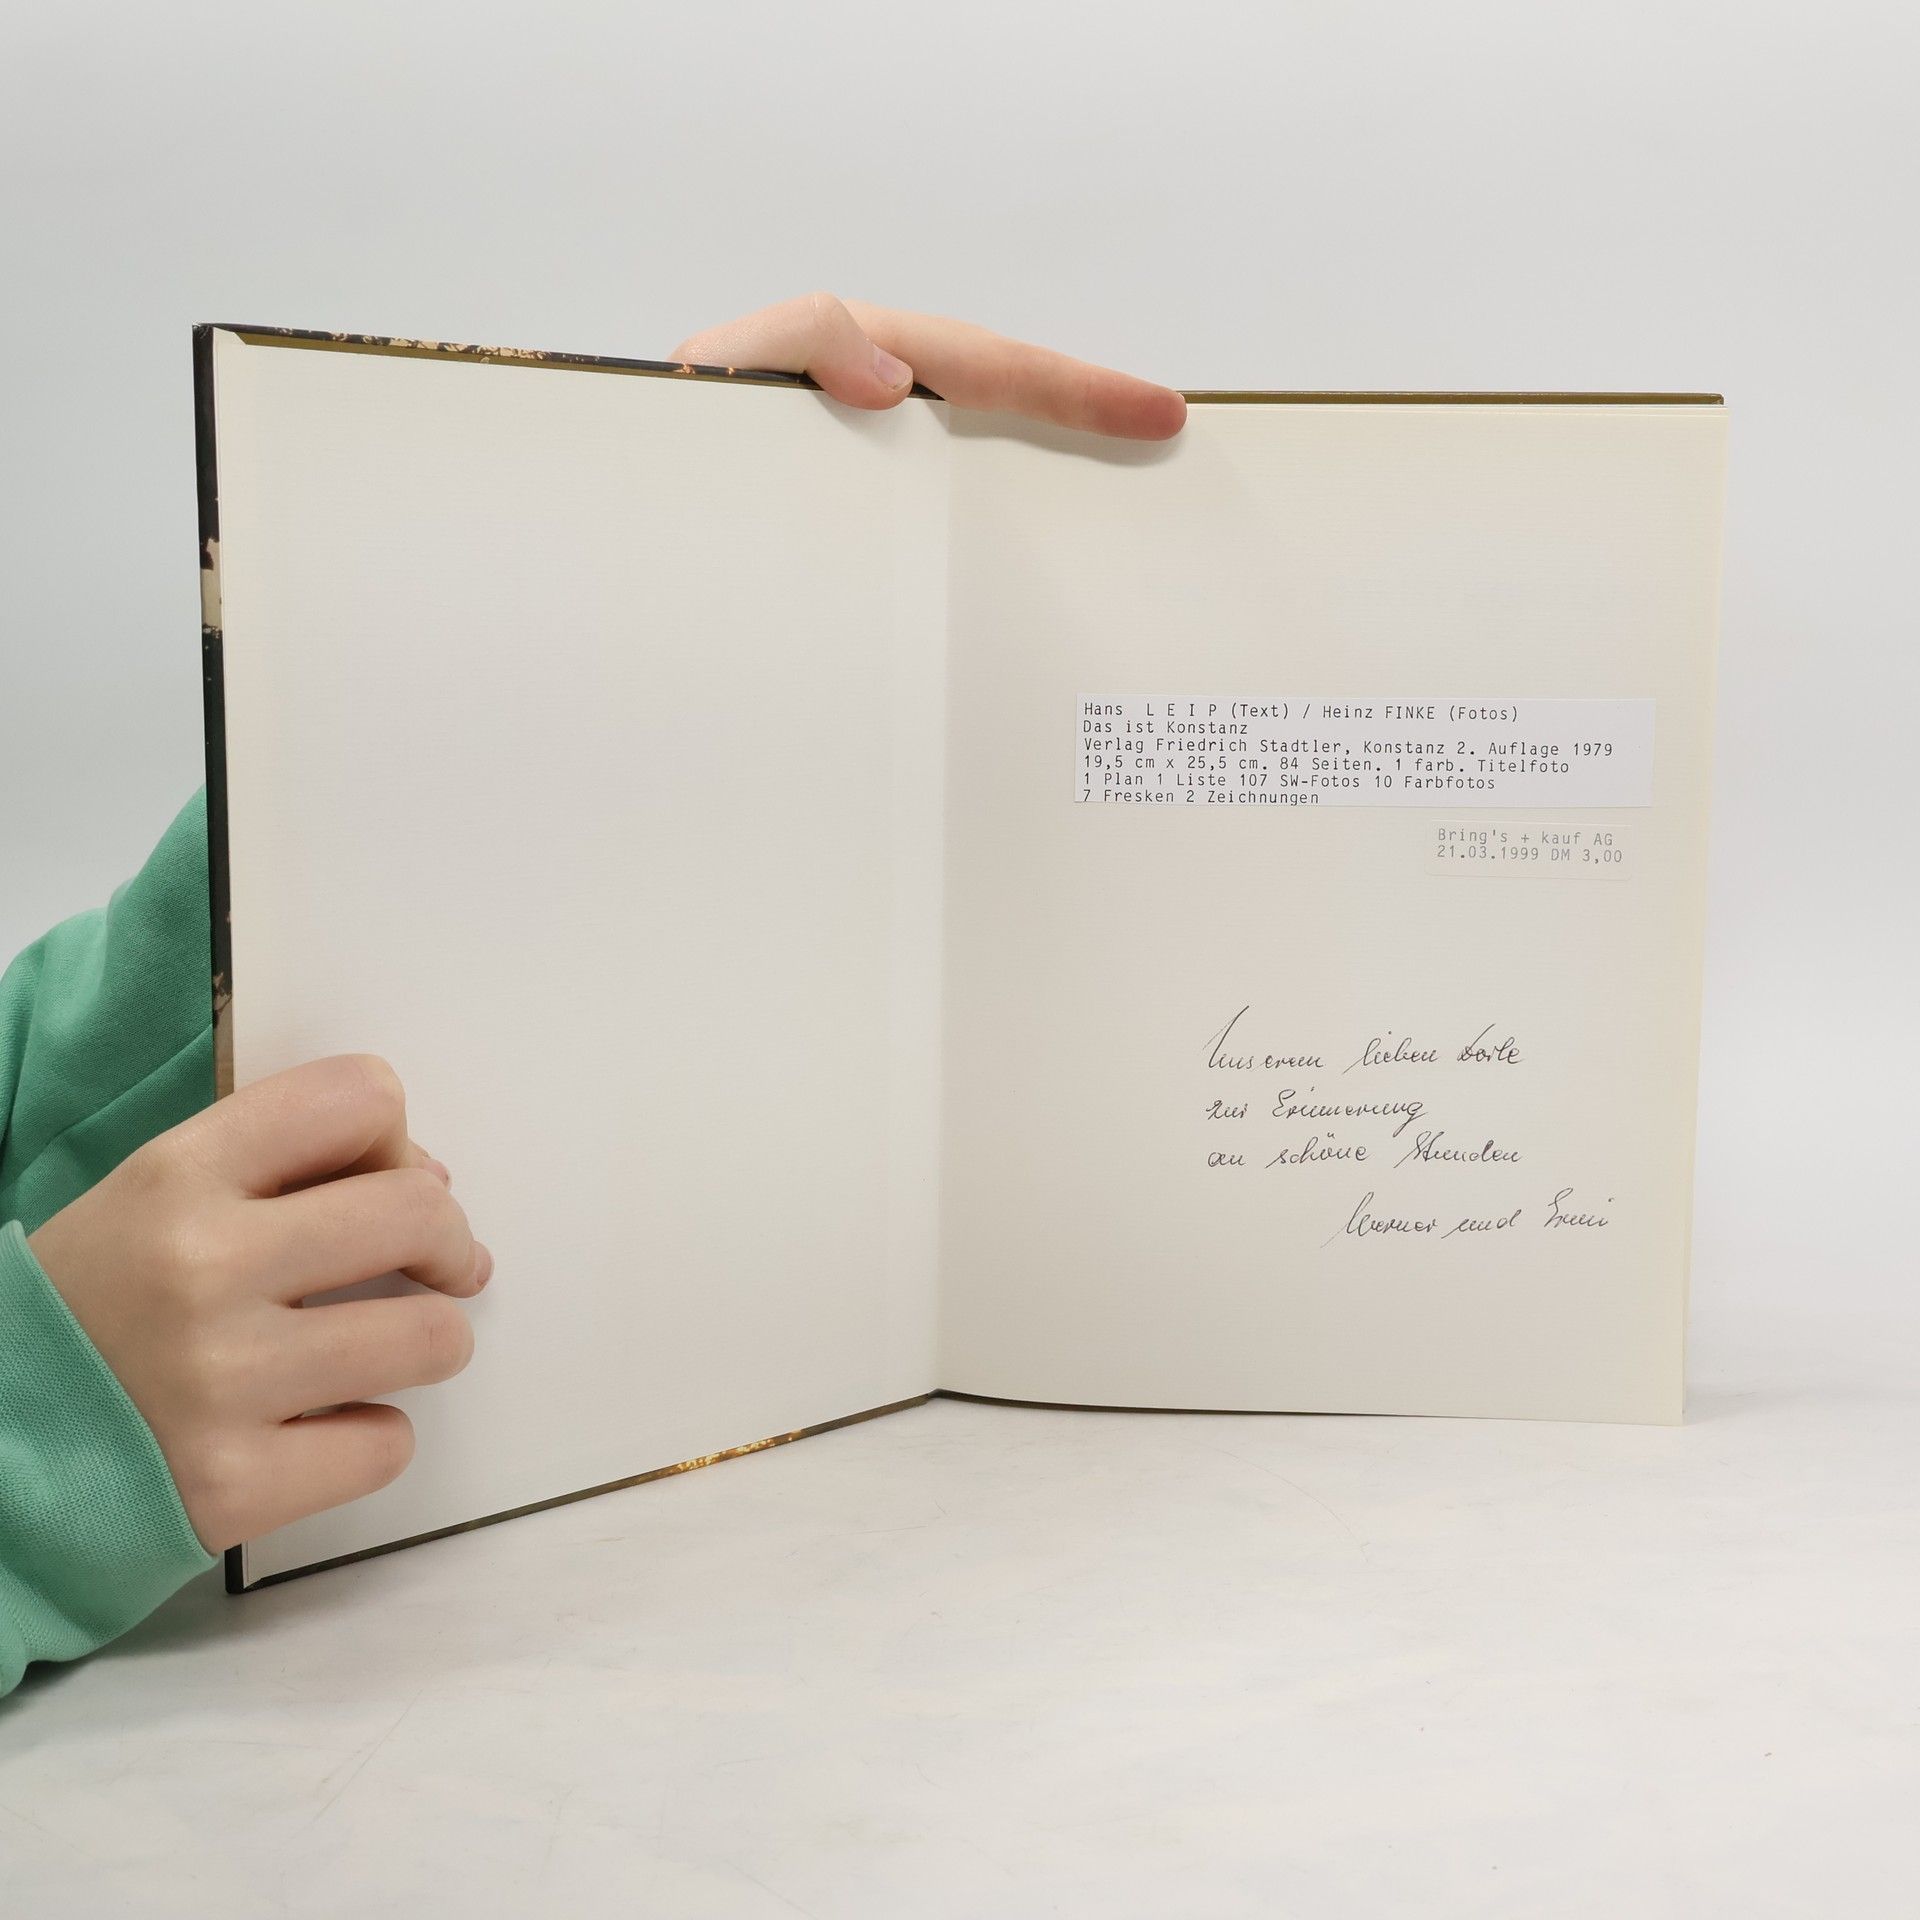 Hans L E I P (Text) / Heinz FINKE (Fotos)
Das ist Konstanz
Verlag Friedrich Stadtler, Konstanz 2. Auflage 1979
19,5 cm x 25,5 cm. 84 Seiten. 1 farb. Titelfoto
1 Plan 1 Liste 107 SW-Fotos 10 Farbfotos
7 Fresken 2 Zeichnungen
Bring's + kauf AG
21.03.1999 DM 3,00
Unserem lieben
zur Erinnerung
an schöne Stunden
Werner und